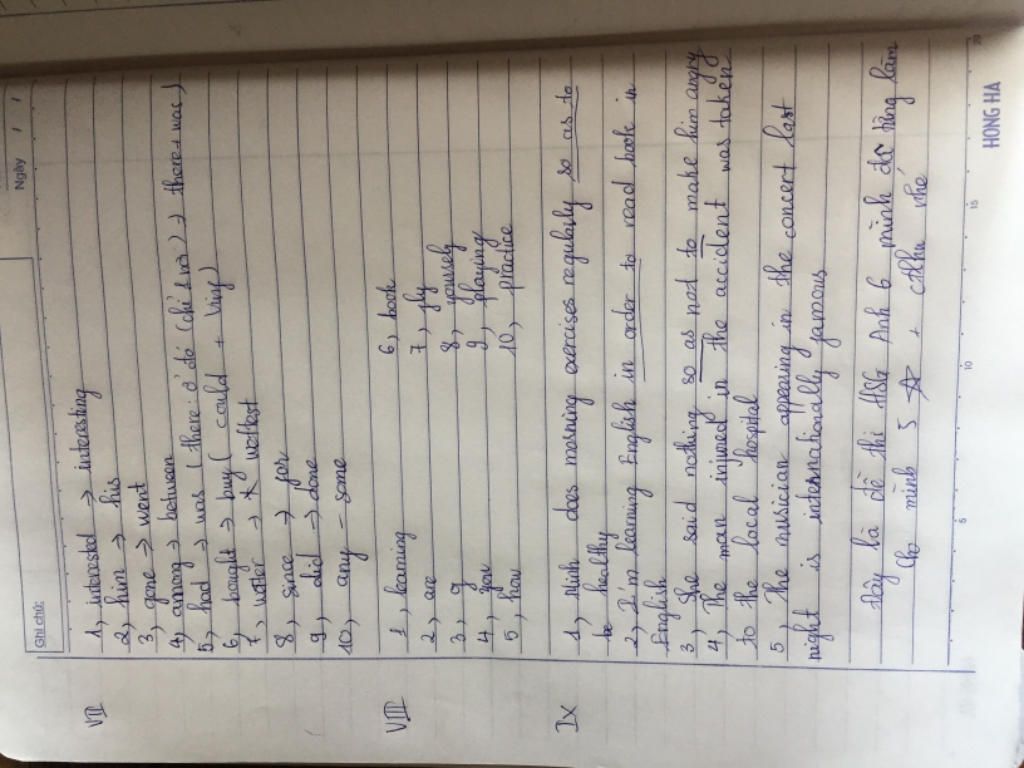 Ngày / /
Ghi chú:
VII
1, interested → interesting
2, him → his
3, gone → went
4, among → between
5, had → was (there: ở đó (chỉ sự vs) → there + was)
6, bought → buy ( could + Ving)
7, wetter → wettest
8, since → for
9, did → done
10, any – some
VIII
1, learning 6, book
2, are 7, fly
3, 8, yoursely
4, you 9, playing
5, how 10, practice
IX
1, Minh does morning exercises regularly so as to
be healthy
2, I'm learning English in order to read book in
English
3, She said nothing so as not to make him angry
4, The man injured in the accident was taken
to the local hospital
5, The musician appearing in the concert last
night is internationally famous
Đây là đề thi HSG Anh 6 mình đã từng làm
Cho mình 5 ☆ + cảm nhé
5 10 15 20
HONG HA